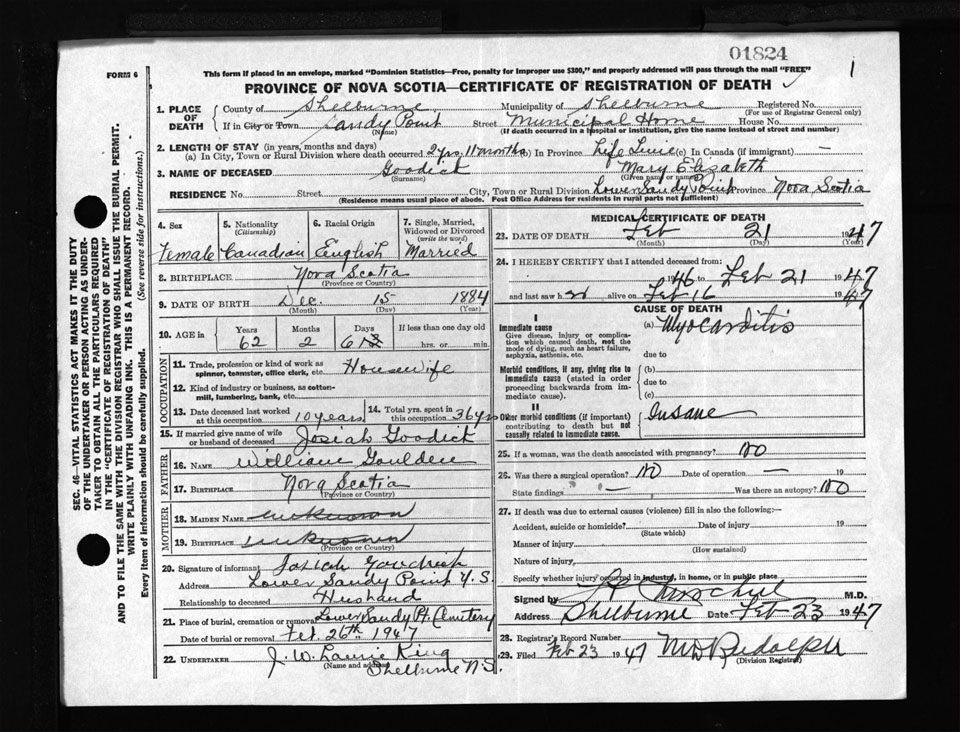 01824
FORM 6
This form if placed in an envelope, marked "Dominion Statistics—Free, penalty for improper use $300," and properly addressed will pass through the mail "FREE"
1
PROVINCE OF NOVA SCOTIA—CERTIFICATE OF REGISTRATION OF DEATH
1. PLACE OF DEATH County of Shelburne Municipality of Shelburne Registered No.
(For use of Registrar General only)
If in City or Town Sandy Point Street Municipal Home House No.
(Name) (If death occurred in a hospital or institution, give the name instead of street and number)
2. LENGTH OF STAY (in years, months and days)
(a) In City, Town or Rural Division where death occurred 2 yrs 11 months (b) In Province Life Time (c) In Canada (if immigrant) —
3. NAME OF DECEASED Goodick Mary Elizabeth
(Surname) (Given name or names)
RESIDENCE No. Street City, Town or Rural Division Lower Sandy Point Province Nova Scotia
(Residence means usual place of abode. Post Office Address for residents in rural parts not sufficient)
4. Sex 5. Nationality (Citizenship) 6. Racial Origin 7. Single, Married, Widowed or Divorced (write the word)
Female Canadian English Married
8. BIRTHPLACE Nova Scotia
(Province or Country)
9. DATE OF BIRTH Dec. 15 1884
(Month) (Day) (Year)
10. AGE in Years Months Days If less than one day old
62 2 6 hrs. or min.
OCCUPATION
11. Trade, profession or kind of work as spinner, teamster, office clerk, etc. Housewife
12. Kind of industry or business, as cotton-mill, lumbering, bank, etc.
13. Date deceased last worked at this occupation 10 years 14. Total yrs. spent in this occupation 36 yrs
15. If married give name of wife or husband of deceased Josiah Goodick
FATHER
16. NAME William Goulden
17. BIRTHPLACE Nova Scotia
(Province or Country)
MOTHER
18. MAIDEN NAME unknown
19. BIRTHPLACE unknown
(Province or Country)
20. Signature of informant Josiah Goodick
Address Lower Sandy Point N.S.
Relationship to deceased Husband
21. Place of burial, cremation or removal Lower Sandy Pt. Cemetery
Date of burial or removal Feb. 26th 1947
22. UNDERTAKER J. W. Laurie King
(Name and address) Shelburne N.S.
MEDICAL CERTIFICATE OF DEATH
23. DATE OF DEATH Feb 21 1947
(Month) (Day) (Year)
24. I HEREBY CERTIFY that I attended deceased from:
1946 to Feb 21 1947
and last saw h er alive on Feb 16 1947
CAUSE OF DEATH
I
Immediate cause (a) Myocarditis
Give disease, injury or complication which caused death, not the mode of dying, such as heart failure, asphyxia, asthenia, etc.
due to
Morbid conditions, if any, giving rise to immediate cause (stated in order proceeding backwards from immediate).
(b)
due to
(c)
II
Other morbid conditions (if important) contributing to death but not causally related to immediate cause. Insane
25. If a woman, was the death associated with pregnancy? No
26. Was there a surgical operation? No Date of operation — 19
State findings — Was there an autopsy? No
27. If death was due to external causes (violence) fill in also the following:—
Accident, suicide or homicide? Date of injury 19
(State which)
Manner of injury
(How sustained)
Nature of injury
Specify whether injury occurred in industry, in home, or in public place
Signed by M.D.
Address Shelburne Date Feb 23 1947
28. Registrar's Record Number
29. Filed Feb 23 1947 M D Rudolph
(Division Registrar)
SEC. 46—VITAL STATISTICS ACT MAKES IT THE DUTY OF THE UNDERTAKER OR PERSON ACTING AS UNDERTAKER TO OBTAIN ALL THE PARTICULARS REQUIRED IN THE "CERTIFICATE OF REGISTRATION OF DEATH"
AND TO FILE THE SAME WITH THE DIVISION REGISTRAR WHO SHALL ISSUE THE BURIAL PERMIT.
WRITE PLAINLY WITH UNFADING INK. THIS IS A PERMANENT RECORD.
Every item of information should be carefully supplied. (See reverse side for instructions.)